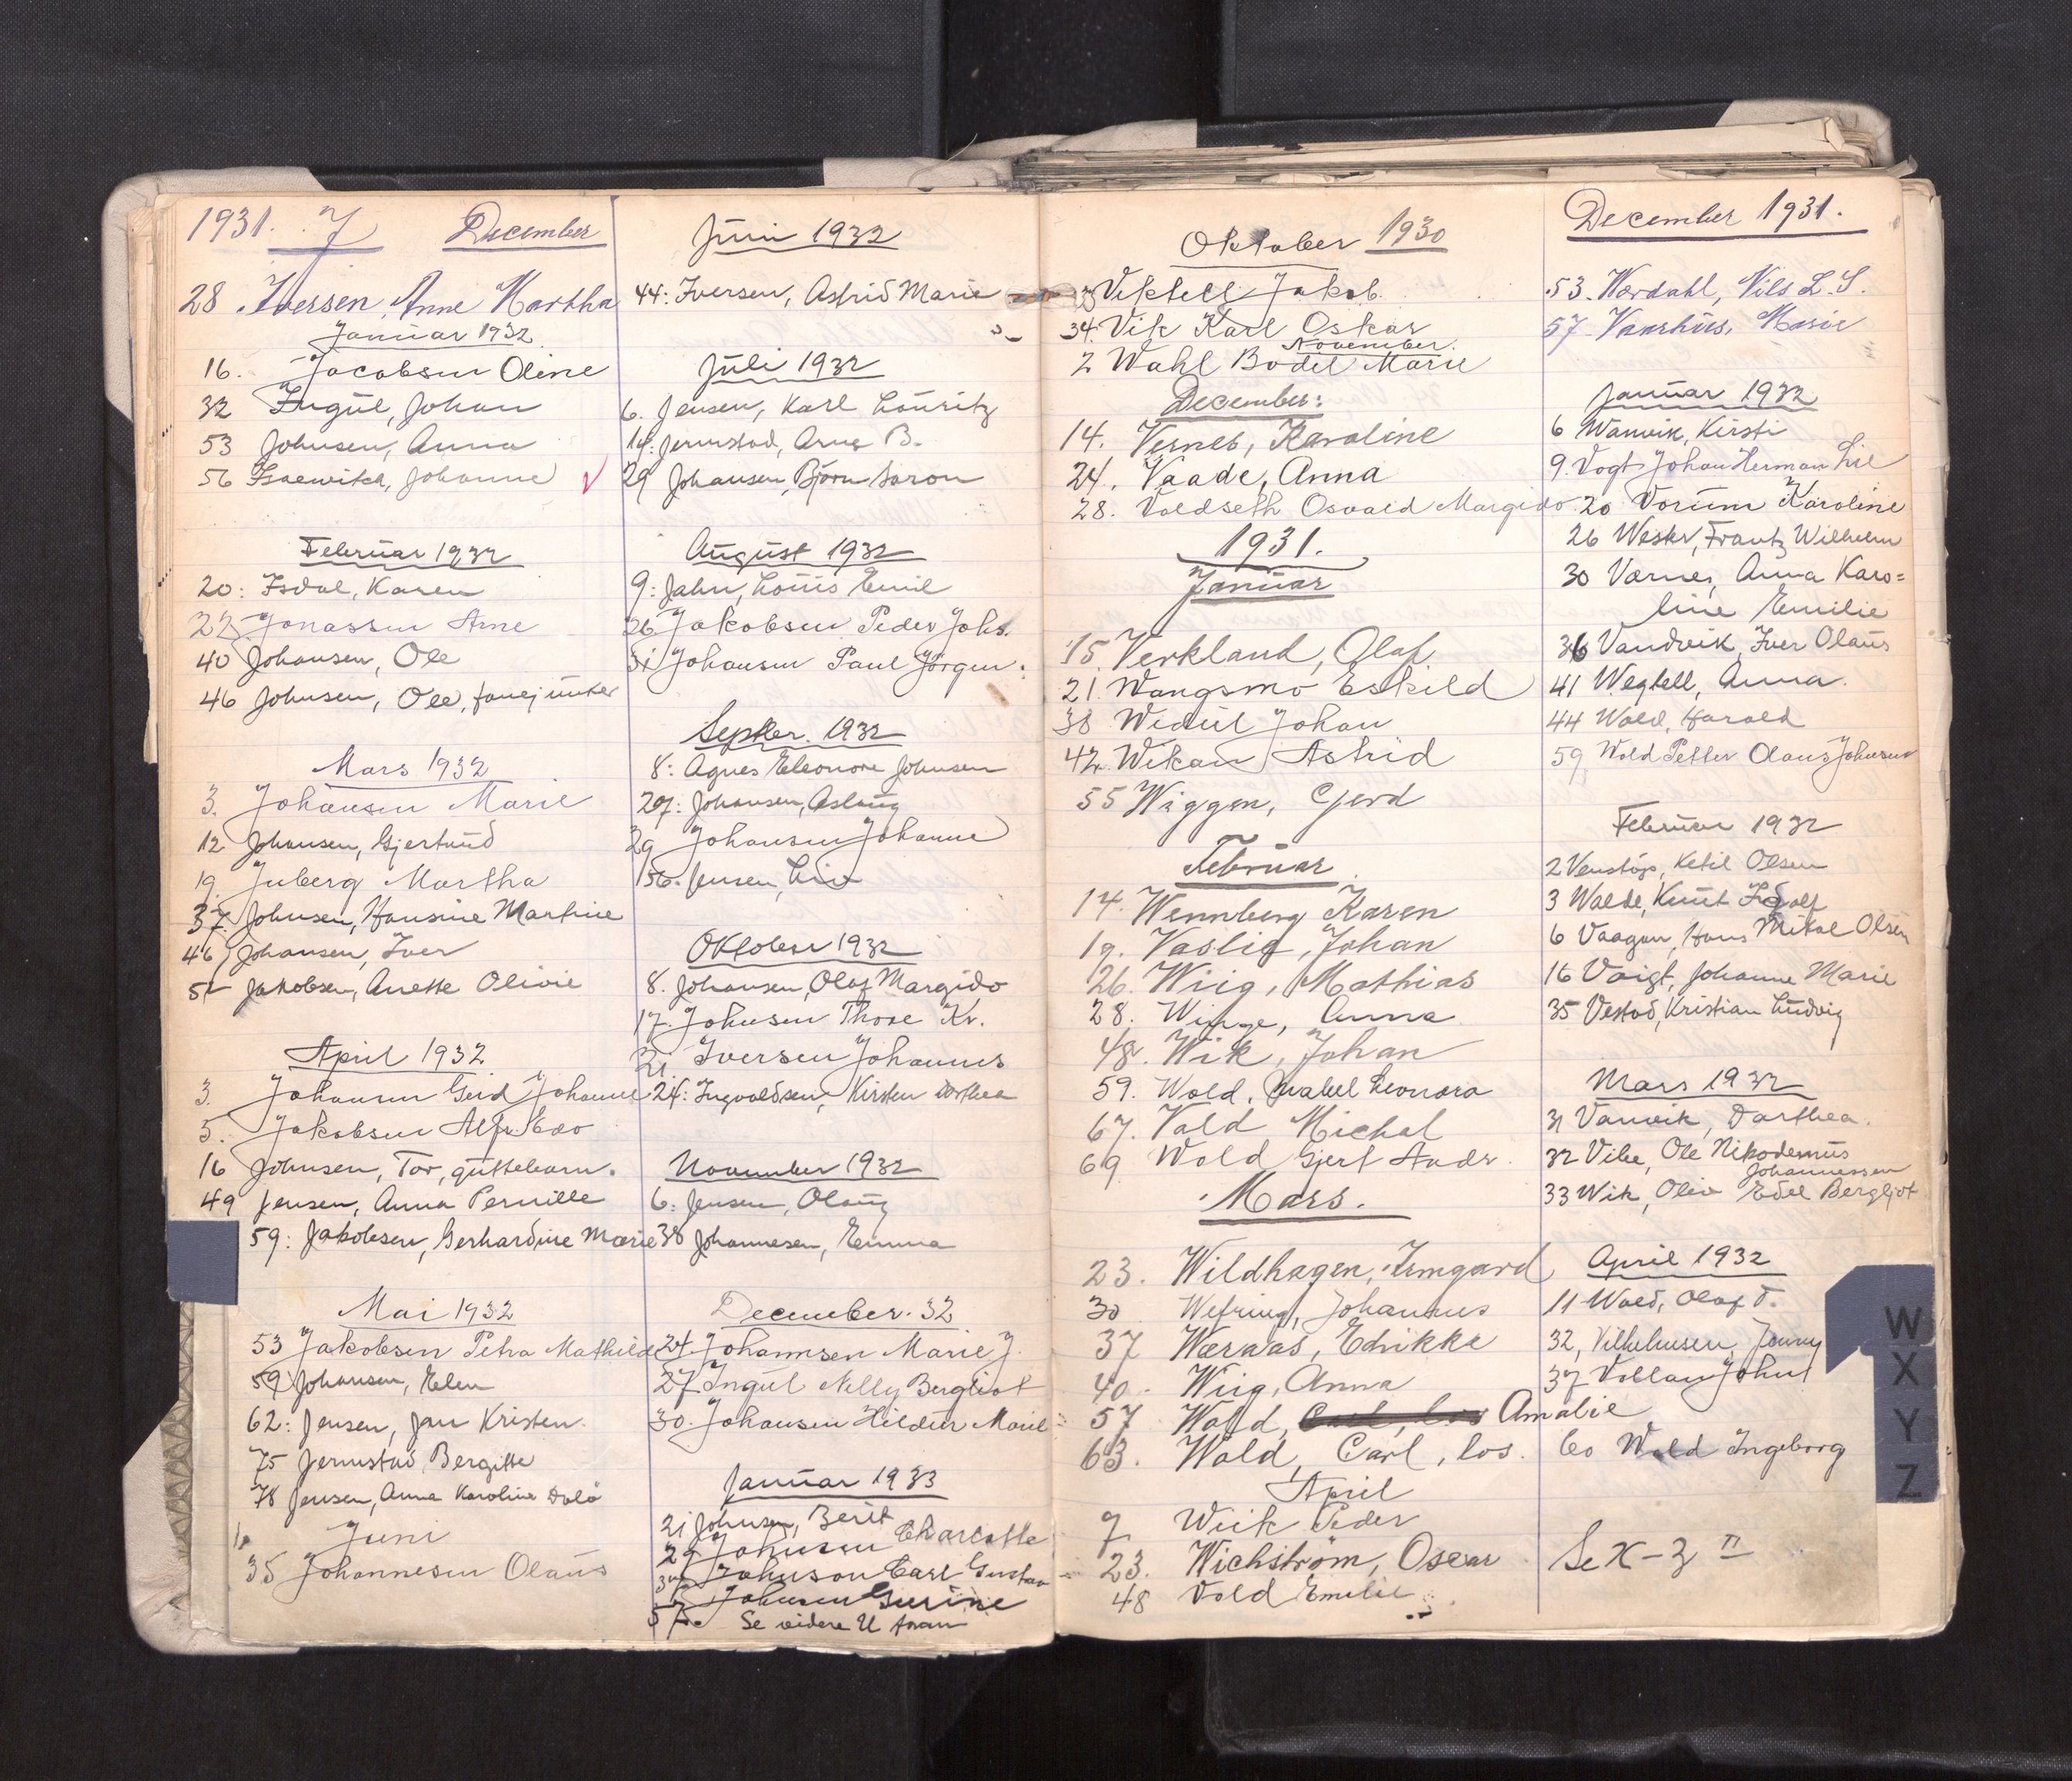 1931. J December
28. Iversen, Anne Martha
Januar 1932
16. Jacobsen Oline
32 Ingul, Johan
53 Johnsen, Anna
56 Isaewitch, Johanne
Februar 1932
20: Isdal, Karen
22 Jonassen Arne
40 Johansen, Ole
46 Johnsen, Ole,
Mars 1932
3. Johansen Marie
12 Johansen, Gjertrud
19. Juberg Martha
37. Johnsen, Hansine Martine
46 Johansen, Iver
51 Jakobsen, Anette Olivie
April 1932
3. Johansen Gerd Johanne
5. Jakobsen Alfr. Edv
16 Johnsen, Tor, guttebarn.
49 Jensen, Anna Pernille
59: Jakobsen, Gerhardine Marie
Mai 1932
53 Jakobsen Petra Mathilde
59 Johansen, Elen
62: Jensen, Jan Kristen
75 Jernstad Bergitte
78 Jensen, Anna Karoline Dalö
Juni
35 Johannesen Olaus
Juni 1932
44: Iversen, Astrid Marie
Juli 1932
6. Jensen, Karl Louritz
14. Jernstad, Arne B.
29 Johansen, Bjørn Soron
August 1932
9: Jahn, Louis Emil
26 Jakobsen Peder Johs.
31 Johansen Paul Jörgen.
Septbr. 1932
8: Agnes Eleonore Johnsen
27: Johansen, Aslaug
29 Johansen Johanne
56. Jensen, Liv
Oktober 1932
8. Johansen, Olaf Margido
17. Johnsen Thore Kr.
21. Iversen Johannes
24: Ingvaldsen, Kirsten Dorthea
November 1932
6: Jensen, Olaug
38 Johannesen, Emma
December. 32
24. Johannsen Marie J.
27 Ingul Nelly Bergliot
30. Johansen Hildur Marie
Januar 1933
21 Johnsen, Berit
29 Johnsen Charlotte
37 Johnson Carl Gustav
57. Johnsen Gurine
Se videre U foran
Oktober 1930
Viktell Jakob.
34. Vik Karl Oskar
November.
2 Wahl Bodil Marie
December:
14. Vernes, Karoline
24. Vaade, Anna
28. Voldseth Osvald Margido
1931.
Januar
15. Verkland, Olaf
21. Wangsmo Eskild
38 Widul Johan
42. Wikan Astrid
55 Wiggen, Gerd
Februar
14. Wennberg Karen
19. Vaslig, Johan
26. Wiig, Mathias
28. Winge, Anna
48. Wik, Johan
59. Wold, Isabel Leonora
67. Vold Michal
69 Wold Gjert Andr.
Mars.
23. Wildhagen, Irmgard
30 Wefring, Johannes
37 Wærnas, Edrikke
40. Wiig, Anna
57 Wold, Amalie
63. Wold, Carl, los.
April
7 Wiik Peder
23. Wichström, Oscar
48 Vold Emilie
December 1931.
53. Wordahl, Nils L. S.
57 Vaarhus, Marie
Januar 1932
6 Wanvik, Kirsti
9. Vogt Johan Herman Lie
20 Vorum Karoline
26 Wester, Frantz Wilhelm
30 Værnes, Anna Karo=
line Emilie
36 Vandvik, Iver Olaus
41 Wegtell, Anna.
44 Wold, Harald
59 Wold Petter Olaus Johnsen
Februar 1932
2 Venstøp, Ketil Olsen
3 Walde, Knut Ingolf
6 Vaagan, Hans Mikal Olsen
16 Voigt, Johanne Marie
35 Vestad, Kristian Ludvig
Mars 1932
31 Vanvik, Dorthea.
32 Vibe, Ole Nikodemus
Johannessen
33 Wik, Oliv Edel Bergljot
April 1932
11 Wold, Olaf T.
32, Vilhelmsen, Jenny
37 Vollan John
60 Wold Ingeborg
Se X-3 II
W
X
Y
Z